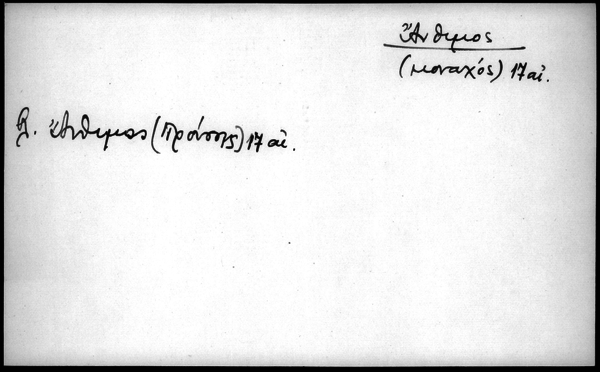 Ἄνθιμος
(μοναχός) 17 αἰ.
β. Ἄνθιμος (Προύσης) 17 αἰ.